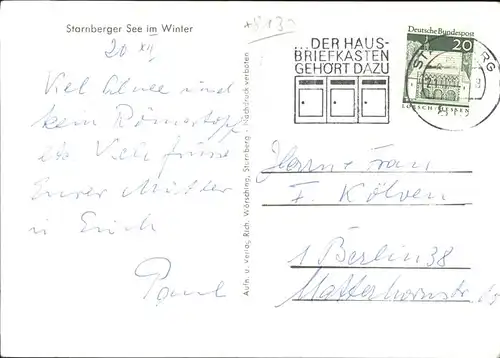 Starnberger See im Winter
20 XII
Viel Schnee und
kein Römertopf
Viele
Eurer Mutter
in
Paul
Aufn. u. Verlag Rich. Wörsching, Starnberg - Nachdruck verboten
...DER HAUS-
BRIEFKASTEN
GEHÖRT DAZU
Deutsche Bundespost
20
LORSCH/HESSEN
Herrn + Frau
F. Kölven
1 Berlin 38
Matterhornstr